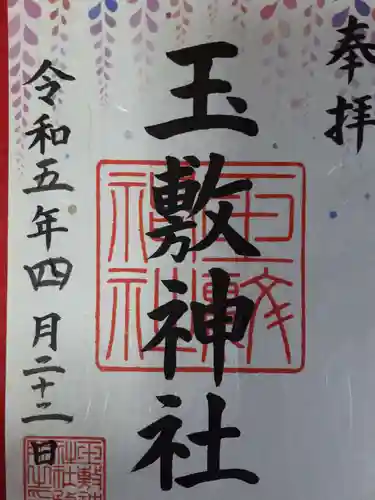 奉拝
玉敷神社
令和五年四月二十二日
玉敷
神社